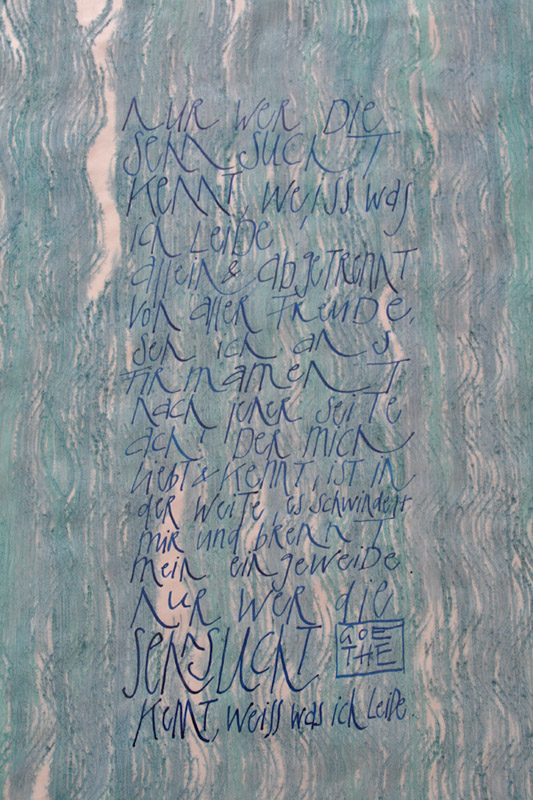 NUR WER DIE
SEHNSUCHT
KENNT, WEISS WAS
ICH LEIDE!
allein & abgetrennt
von aller Freude,
seh ich ans
Firmament
nach jener Seite
ach! Der mich
liebt & kennt, ist in
der Weite, es schwindelt
mir und brennt
mein eingeweide.
Nur wer die
SEHNSUCHT
GOE
THE
kennt, weiss was ich leide.